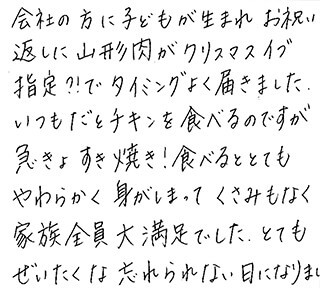 会社の方に子どもが生まれ お祝い
返しに 山形肉が クリスマスイブ
指定?!で タイミングよく届きました.
いつもだとチキンを食べるのですが
急きょ すき焼き!食べるととても
やわらかく 身がしまって くさみもなく
家族全員 大満足でした. とても
ぜいたくな 忘れられない日になりまし